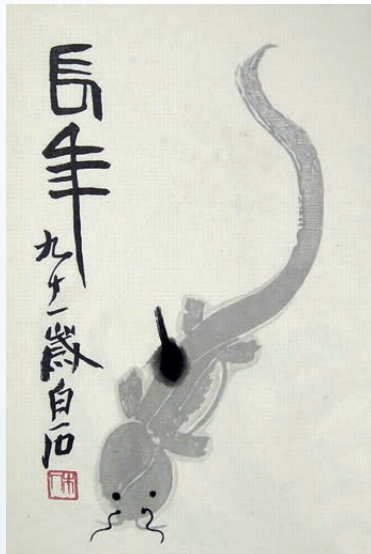 長年九十一歲白石